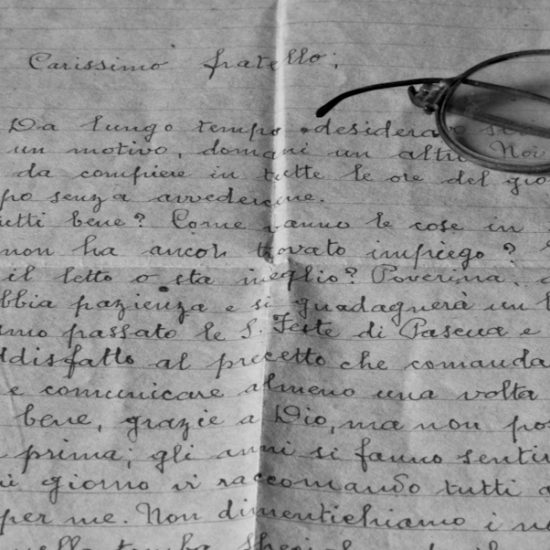 Carissimo fratello;
Da lungo tempo desideravo
un motivo, domani un altro. Noi
da compiere in tutte le ore del gio
po senza avvedercene.
utti bene? Come vanno le cose in
non ha ancor trovato impiego?
il letto o sta meglio? Poverina,
bbia pazienza e si guadagnerà un
mo passato le S. Feste di Pascua e
ddisfatto al precetto che comanda
e comunicare almeno una volta
bene, grazie a Dio, ma non pos
prima; gli anni si fanno sentir
giorno vi raccomando tutti
per me. Non dimentichiamo i n
nella tomba